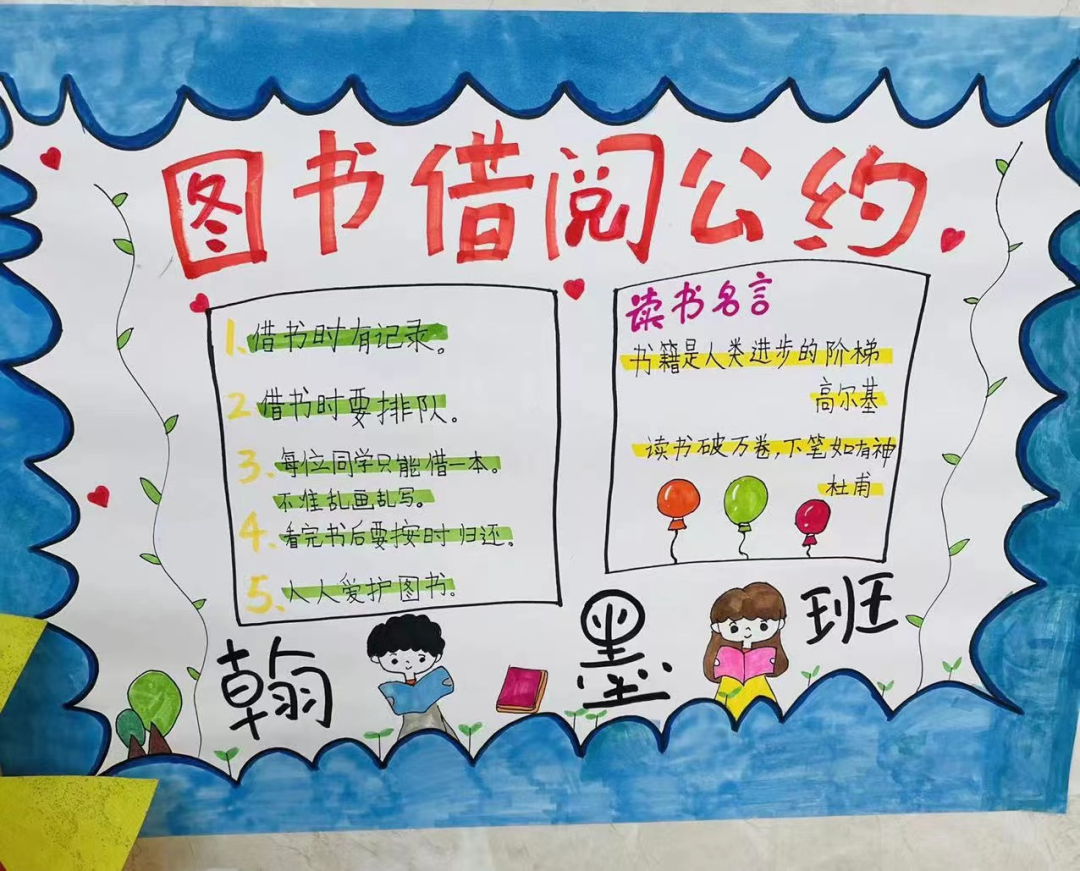 图书借阅公约.
1.借书时有记录。
2.借书时要排队。
3.每位同学只能借一本。
不准乱画乱写。
4.看完书后要按时归还。
5.人人爱护图书。
读书名言
书籍是人类进步的阶梯
高尔基
读书破万卷,下笔如有神
杜甫
翰墨班